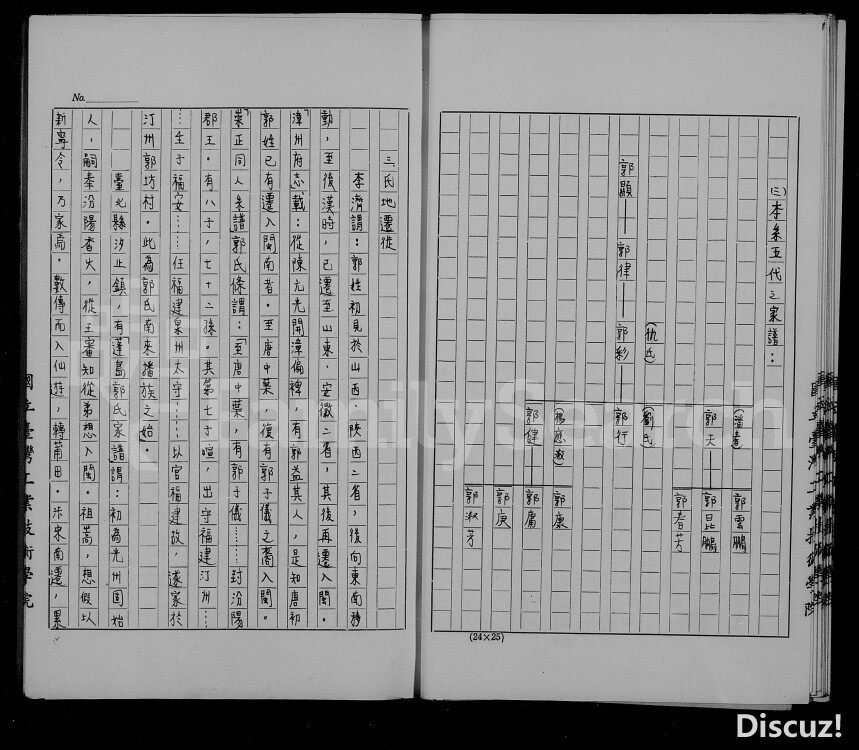 ㈢李系五代之家譜：
郭顯——郭律——郭彩——
(仇氏)
(劉氏)
郭行
(潘春)
郭天
郭雲鵬
郭昆鵬
郭春芳
郭健
郭康
郭庸
郭庚
郭淑芳
(24×25)
國立臺灣工業技術學院
No.
三、氏地遷徙
李濟謂：郭姓初見於山西、陝西二省，後向東南移
動，至後漢時，已遷至山東、安徽二省，其後再遷入閩。
「漳州府志」載：從陳元光開漳偏裨，有郭益其人，是知唐初
郭姓已有遷入閩南者。至唐中葉，復有郭子儀之裔入閩。
「萊正同人系譜郭氏條謂：「至唐中葉，有郭子儀……封汾陽
郡王。有八子，七十二孫。其第七子暄，出守福建汀州……
…生于福安……任福建泉州太守……以官福建故，遂家於
汀州郭坊村。此為郭氏南來播族之始。
臺北縣汐止鎮，有「蓬島郭氏家譜」謂：初為光州固始
人，嗣奉汾陽香火，從王審知從弟想入閩。祖嵩，想假以
新寧令，乃家焉。數傳而入仙遊，轉莆田。宋南遷，累
國立臺灣工業技術學院
FamilySearch
Discuz!